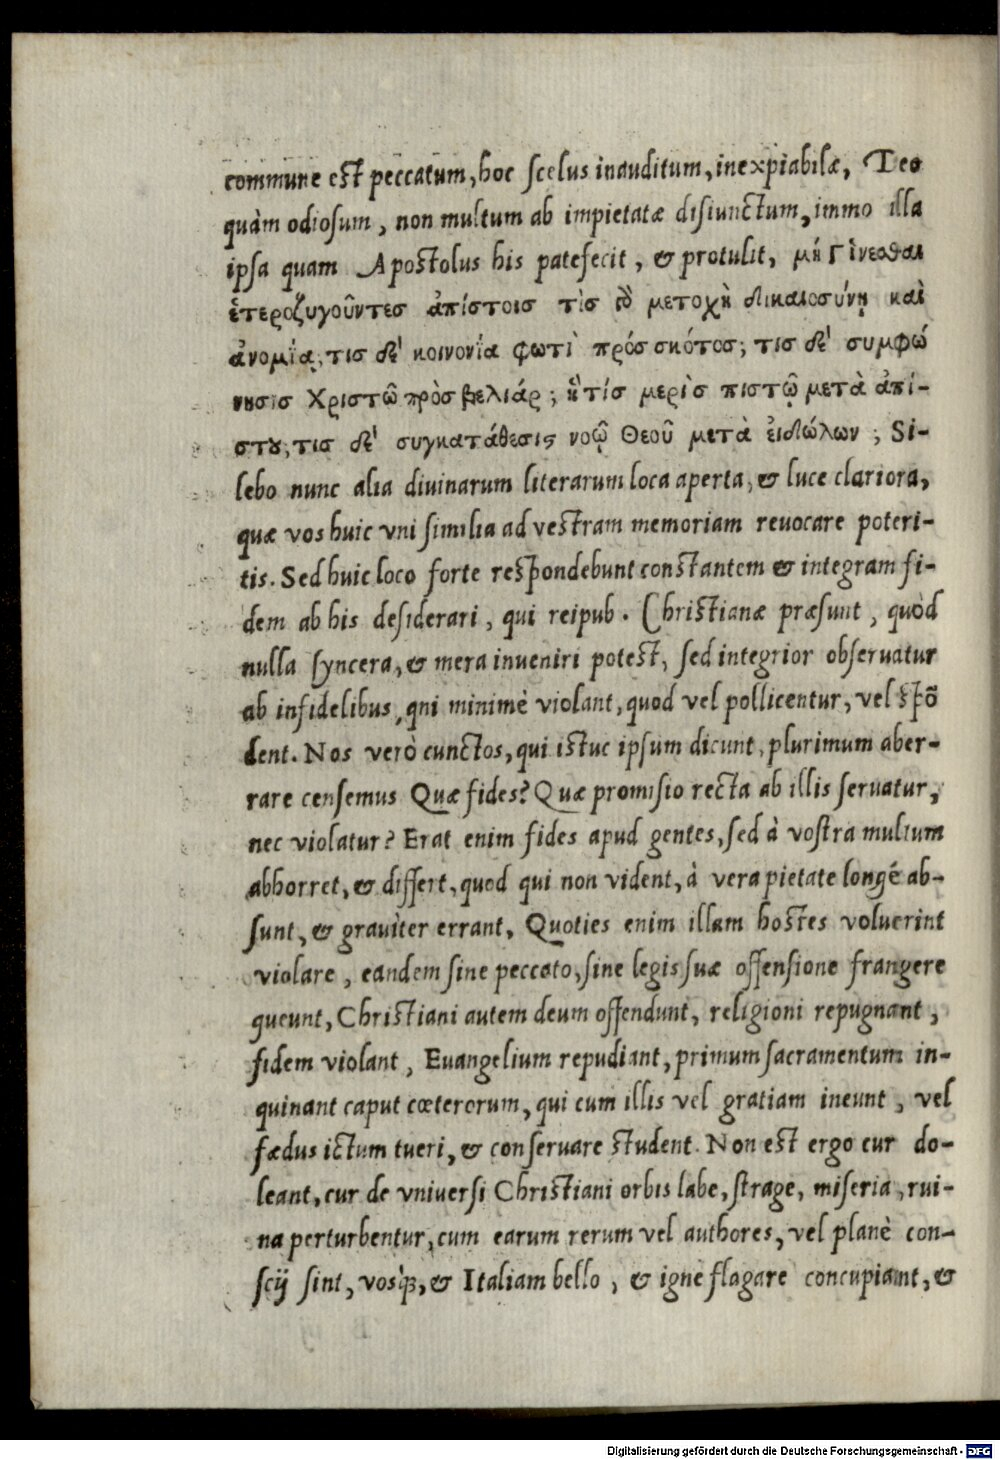 commune est peccatum, hoc scelus inauditum, inexpiabilæ, Deo
quàm odiosum, non multum ab impietatæ disiunctum, immo illa
ipsa quam Apostolus his patefecit, & protulit, μὴ Γίνεσθαι
ἑτεροζυγοῦντεσ ἀπίστοισ τὶσ γὸ μετοχὴ δικαιοσύνῃ καὶ
ἀνομΐα, τισ δὲ κοινονΐα φωτὶ πρόσ σκότοσ; τισ δὲ συμφώ
νησισ Χριστῶ πρὸσ βελιάρ; ἢ τίσ μερὶσ πιστῷ μετὰ ἀπί-
στȣ, τισ δὲ συγκατάθεσις νοῷ Θεοῦ μετὰ ἐιδώλων; Si-
lebo nunc alia diuinarum literarum loca aperta, & luce clariora,
quæ vos huic vni similia ad vestram memoriam reuocare poteri-
tis. Sed huic loco forte respondebunt constantem & integram fi-
dem ab his desiderari, qui reipub. Christianæ præsunt, quòd
nulla syncera, & mera inueniri potest, sed integrior obseruatur
ab infidelibus, qni minimè violant, quod vel pollicentur, vel spõ
dent. Nos verò cunctos, qui istuc ipsum dicunt, plurimum aber-
rare censemus Quæ fides? Quæ promisio recta ab illis seruatur,
nec violatur? Erat enim fides apud gentes, sed à vostra multum
abhorret, & differt, quod qui non vident, à vera pietate longé ab-
sunt, & grauìter errant, Quoties enim illam hostes voluerint
violare, eandem sine peccato, sine legis suæ offensione frangere
queunt, Christiani autem deum offendunt, religioni repugnant,
fidem violant, Euangelium repudiant, primum sacramentum in-
quinant caput cœterorum, qui cum illis vel gratiam ineunt, vel
fædus ictum tueri, & conseruare student. Non est ergo cur do-
leant, cur de vniuersi Christiani orbis labe, strage, miseria, rui-
na perturbentur, cum earum rerum vel authores, vel planè con-
scij sint, vosq̃, & Italiam bello, & igne flagare concupiant, &
Digitalisierung gefördert durch die Deutsche Forschungsgemeinschaft - DFG